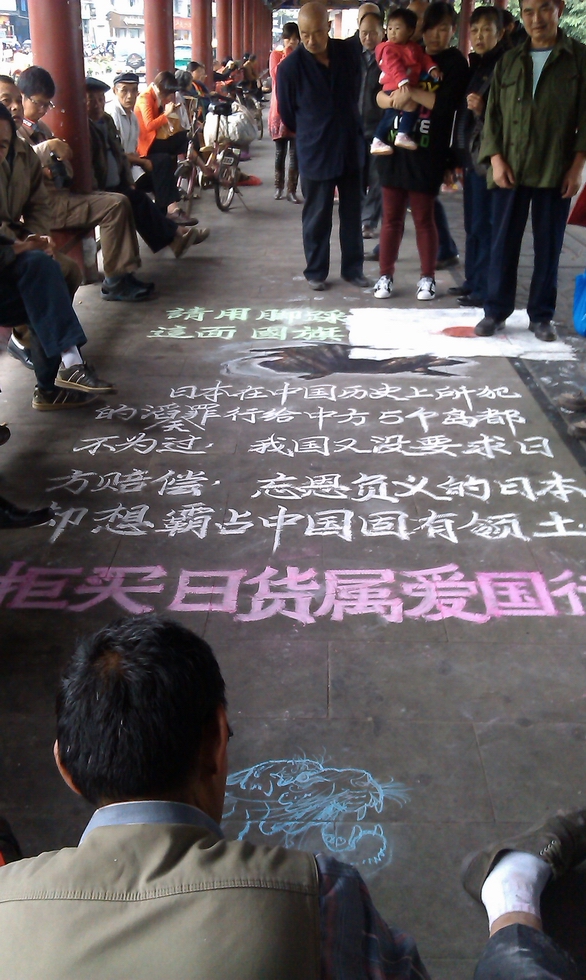 請用脚踩
這面國旗
日本在中国历史上所犯
的滔天罪行给中方5个岛都
不为过，我国又没要求日
方赔偿，忘恩负义的日本
却想霸占中国固有领土
拒买日货属爱国行